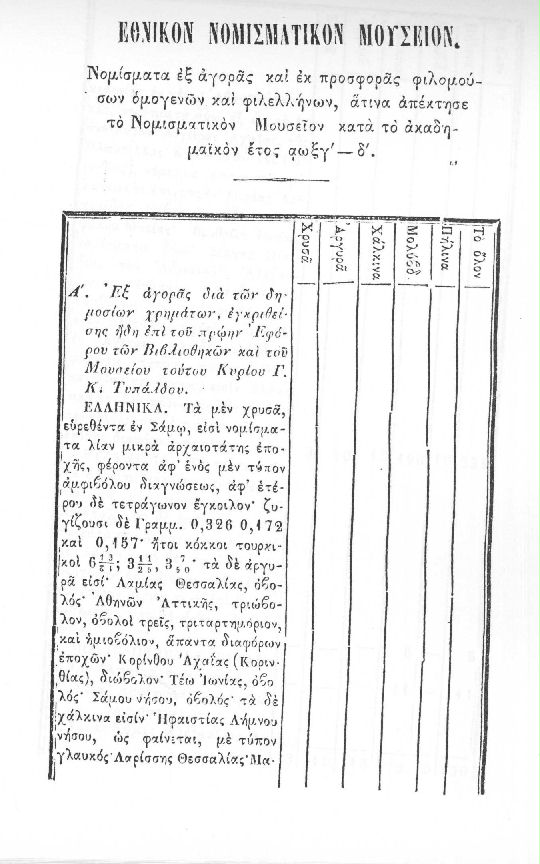 ΕΘΝΙΚΟΝ ΝΟΜΙΣΜΑΤΙΚΟΝ ΜΟΥΣΕΙΟΝ.
Νομίσματα ἐξ ἀγορᾶς καὶ ἐκ προσφορᾶς φιλομού-
σων ὁμογενῶν καὶ φιλελλήνων, ἅτινα ἀπέκτησε
τὸ Νομισματικὸν Μουσεῖον κατὰ τὸ ἀκαδη-
μαϊκὸν ἔτος αωξγʹ—δʹ.
Χρυσᾶ
Ἀργυρᾶ
Χάλκινα
Μολύβδ.
Πήλινα
Τὸ ὅλον
Αʹ. Ἐξ ἀγορᾶς διὰ τῶν δη-
μοσίων χρημάτων, ἐγκριθεί-
σης ἤδη ἐπὶ τοῦ πρῴην Ἐφό-
ρου τῶν Βιβλιοθηκῶν καὶ τοῦ
Μουσείου τούτου Κυρίου Γ.
Κ. Τυπάλδου.
ΕΛΛΗΝΙΚΑ. Τὰ μὲν χρυσᾶ,
εὑρεθέντα ἐν Σάμῳ, εἰσὶ νομίσμα-
τα λίαν μικρὰ ἀρχαιοτάτης ἐπο-
χῆς, φέροντα ἀφ' ἑνὸς μὲν τύπον
ἀμφιβόλου διαγνώσεως, ἀφ' ἑτέ-
ρου δὲ τετράγωνον ἔγκοιλον· ζυ-
γίζουσι δὲ Γραμμ. 0,326 0,172
καὶ 0,157· ἤτοι κόκκοι τουρκι-
κοὶ 6 3 3 τὰ δὲ ἀργυ-
ρᾶ εἰσί· Λαμίας Θεσσαλίας, ὀβο-
λός· Ἀθηνῶν Ἀττικῆς, τριώβο-
λον, ὀβολοὶ τρεῖς, τριταρτημόριον,
καὶ ἡμιοβόλιον, ἅπαντα διαφόρων
ἐποχῶν· Κορίνθου Ἀχαΐας (Κοριν-
θίας), διώβολον· Τέω Ἰωνίας, ὀβο-
λός· Σάμου νήσου, ὀβολός· τὰ δὲ
χάλκινα εἰσίν· Ἡφαιστίας Λήμνου
νήσου, ὡς φαίνεται, μὲ τύπον
γλαυκός· Λαρίσσης Θεσσαλίας· Μα-